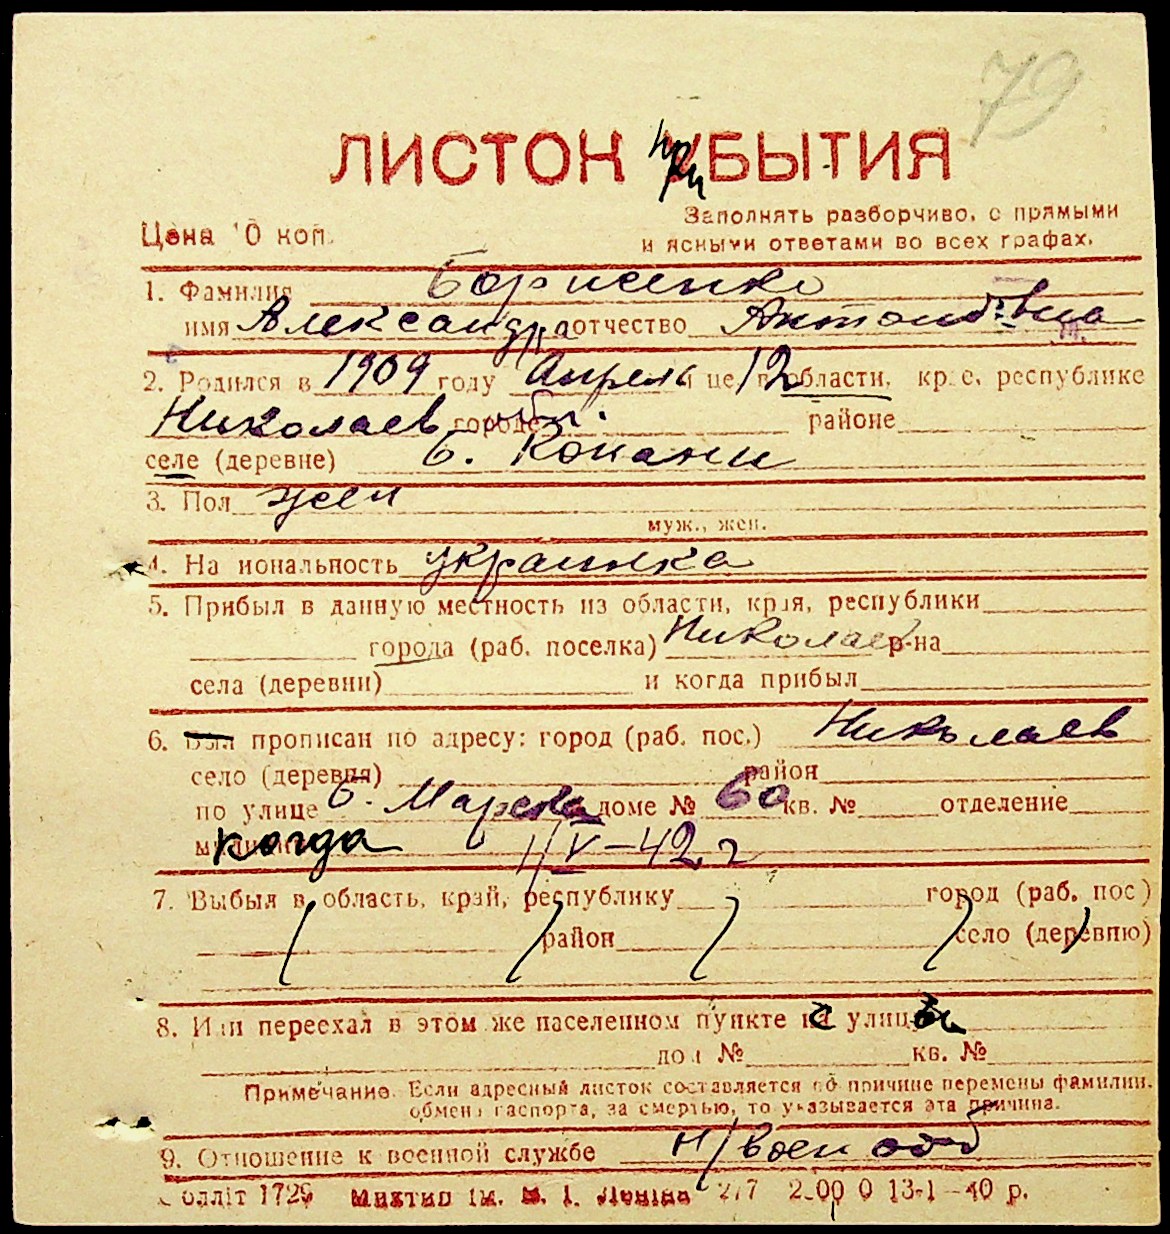 79
ЛИСТОК при УБЫТИЯ
Цена 10 коп.
Заполнять разборчиво, с прямыми
и ясными ответами во всех графах.
1. Фамилия Борисенко
имя Александра отчество Антоновна
2. Родился в 1909 году Апрель 12 области, крае, республике
Николаев городе обл. районе
селе (деревне) б.
3. Пол жен
муж., жен.
4. Национальность украинка
5. Прибыл в данную местность из области, края, республики
города (раб. поселка) Николаев р-на
села (деревни) и когда прибыл
6. Был прописан по адресу: город (раб. пос.) Николаев
село (деревня) район
по улице б. доме № 60 кв. № отделение
милиции когда 1/V-42 г
7. Выбыл в область, край, республику город (раб. пос)
район село (деревню)
8. Или переехал в этом же населенном пункте с улицы
дом № кв. №
Примечание. Если адресный листок составляется по причине перемены фамилии,
обмена паспорта, за смертью, то указывается эта причина.
9. Отношение к военной службе н/воен обяз
Облліт 1729 Миктип ім. В. І. Леніна 217 2.00 0 13-1-40 р.